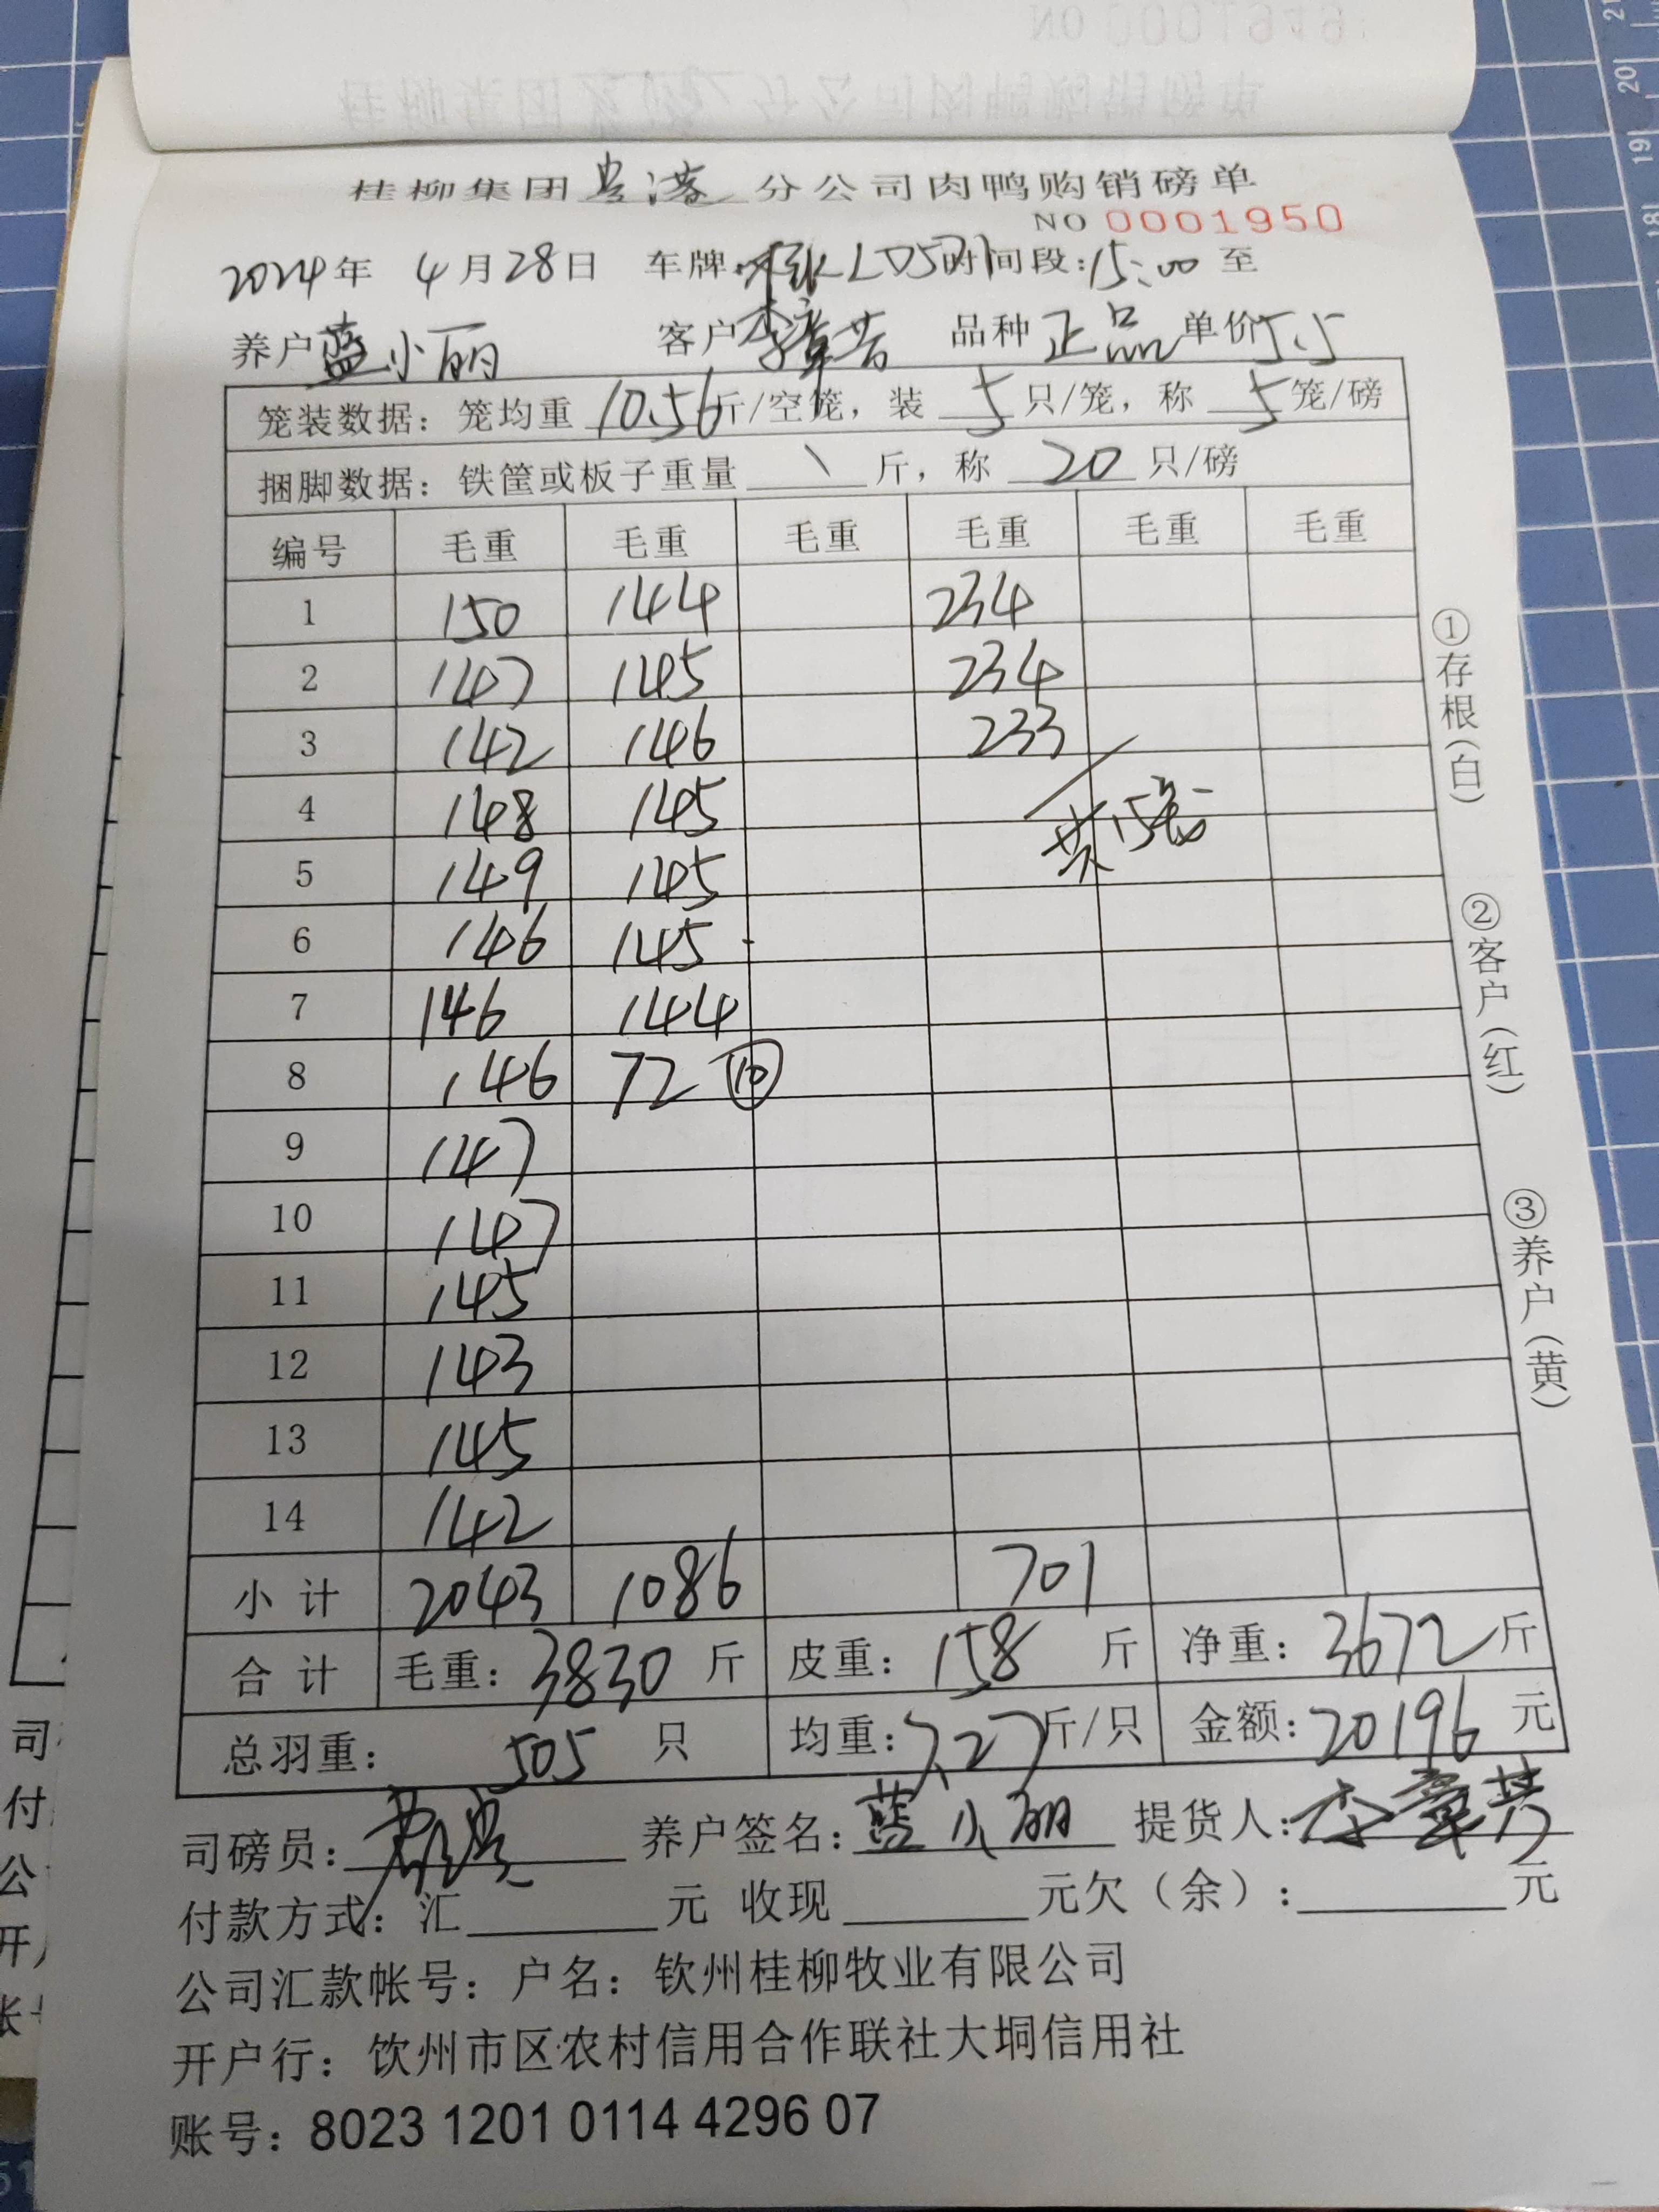 NO 0001949
桂柳集团贵港分公司肉鸭购销磅单
NO 0001950
2024年 4月28日 车牌 LD5 时间段:15:00 至
养户 蓝小丽 客户 李章芳 品种 正品 单价 5.5
笼装数据：笼均重 10.56 斤/空笼，装 5 只/笼，称 5 笼/磅
捆脚数据：铁筐或板子重量 \ 斤，称 20 只/磅
编号 毛重 毛重 毛重 毛重 毛重 毛重
1 150 144 234
2 147 145 234
3 142 146 233
4 148 145 共15笼
5 149 145
6 146 145
7 146 144
8 146 72 ⑩
9 147
10 147
11 145
12 143
13 145
14 142
小计 2043 1086 701
合计 毛重：3830 斤 皮重：158 斤 净重：3672 斤
总羽重：505 只 均重：7.27 斤/只 金额：20196 元
司磅员： 养户签名：蓝小丽 提货人：李章芳
付款方式：汇 元 收现 元欠（余）： 元
公司汇款帐号：户名：钦州桂柳牧业有限公司
开户行：饮州市区农村信用合作联社大垌信用社
账号：8023 1201 0114 4296 07
①存根(白)
②客户(红)
③养户(黄)